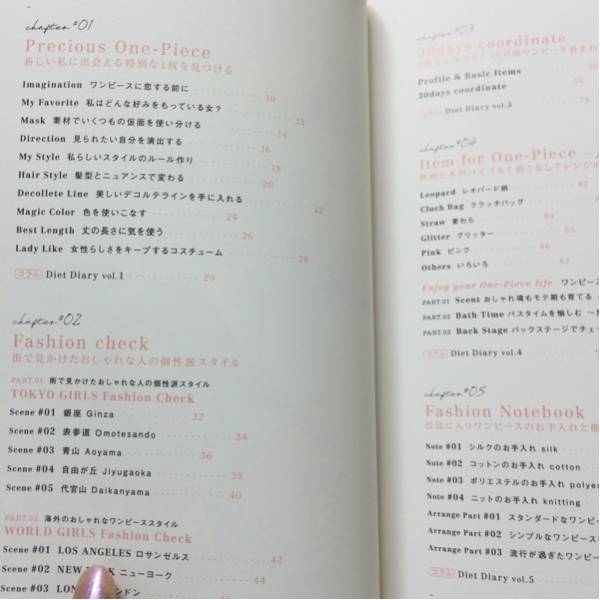 chapter #01
Precious One-Piece
新しい私に出会える特別な1枚を見つける
Imagination ワンピースに恋する前に 10
My Favorite 私はどんな好みをもっている女? 12
Mask 素材でいくつもの仮面を使い分ける 14
Direction 見られたい自分を演出する 16
My Style 私らしいスタイルのルール作り 18
Hair Style 髪型とニュアンスで変わる 20
Decollete Line 美しいデコルテラインを手に入れる 22
Magic Color 色を使いこなす 24
Best Length 丈の長さに気を使う 26
Lady Like 女性らしさをキープするコスチューム 28
コラム Diet Diary vol.1 29
chapter #02
Fashion check
街で見かけたおしゃれな人の個性派スタイル
PART.01 街で見かけたおしゃれな人の個性派スタイル
TOKYO GIRLS Fashion Check
Scene #01 銀座 Ginza 32
Scene #02 表参道 Omotesando 34
Scene #03 青山 Aoyama 36
Scene #04 自由が丘 Jiyugaoka 38
Scene #05 代官山 Daikanyama 40
PART.02 海外のおしゃれなワンピーススタイル
WORLD GIRLS Fashion Check
Scene #01 LOS ANGELES ロサンゼルス 42
Scene #02 NEW ニューヨーク 44
Scene #03 ンドン 46
chapter #03
30days coordinate
Profile & Basic Items
30days coordinate
コラム Diet Diary vol.3
chapter #04
Item for One-Piece
Leopard レオパード柄
Cluch Bag クラッチバッグ
Straw 麦わら
Glitter グリッター
Pink ピンク
Others いろいろ
Enjoy your One-Piece life ワンピー
PART:01 Scent おしゃれ魂もモテ期も育てる
PART:02 Bath Time バスタイムを愉しむ
PART:03 Back Stage バックステージでチェ
コラム Diet Diary vol.4
chapter #05
Fashion Notebook
お気に入りワンピースのお手入れと
Note #01 シルクのお手入れ silk
Note #02 コットンのお手入れ cotton
Note #03 ポリエステルのお手入れ polyes
Note #04 ニットのお手入れ knitting
Arrange Part #01 スタンダードなワンピー
Arrange Part #02 シンプルなワンピース
Arrange Part #03 流行が過ぎたワンピー
コラム Diet Diary vol.5